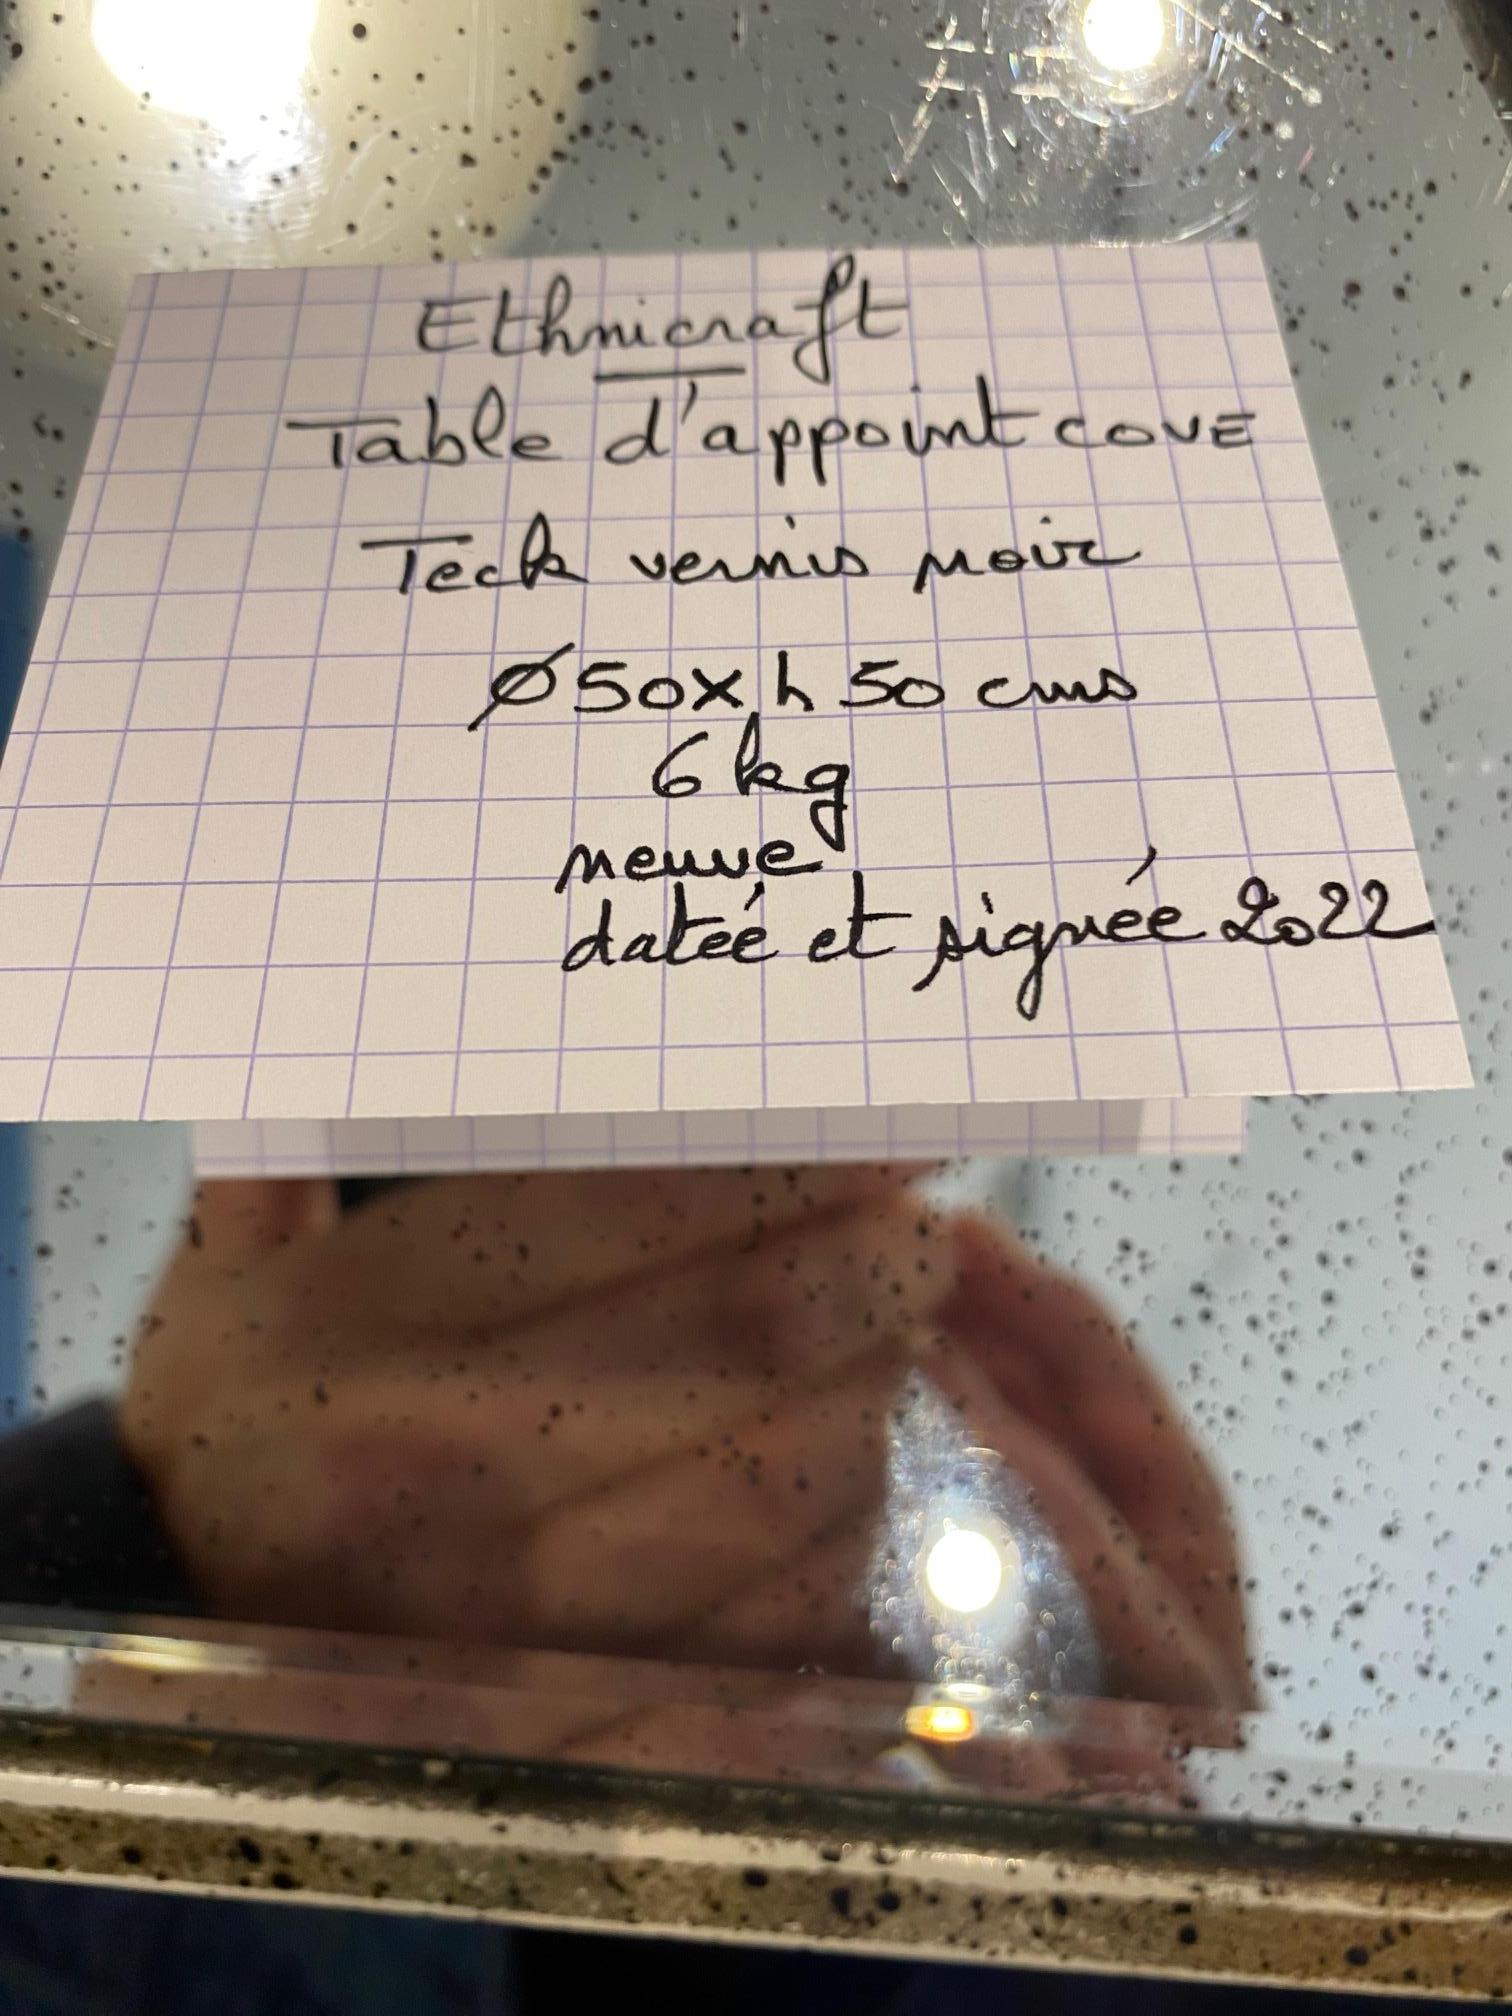 Ethnicraft
Table d'appoint COVE
Teck vernis noir
Ø50x h 50 cms
6 kg
neuve
datée et signée 2022